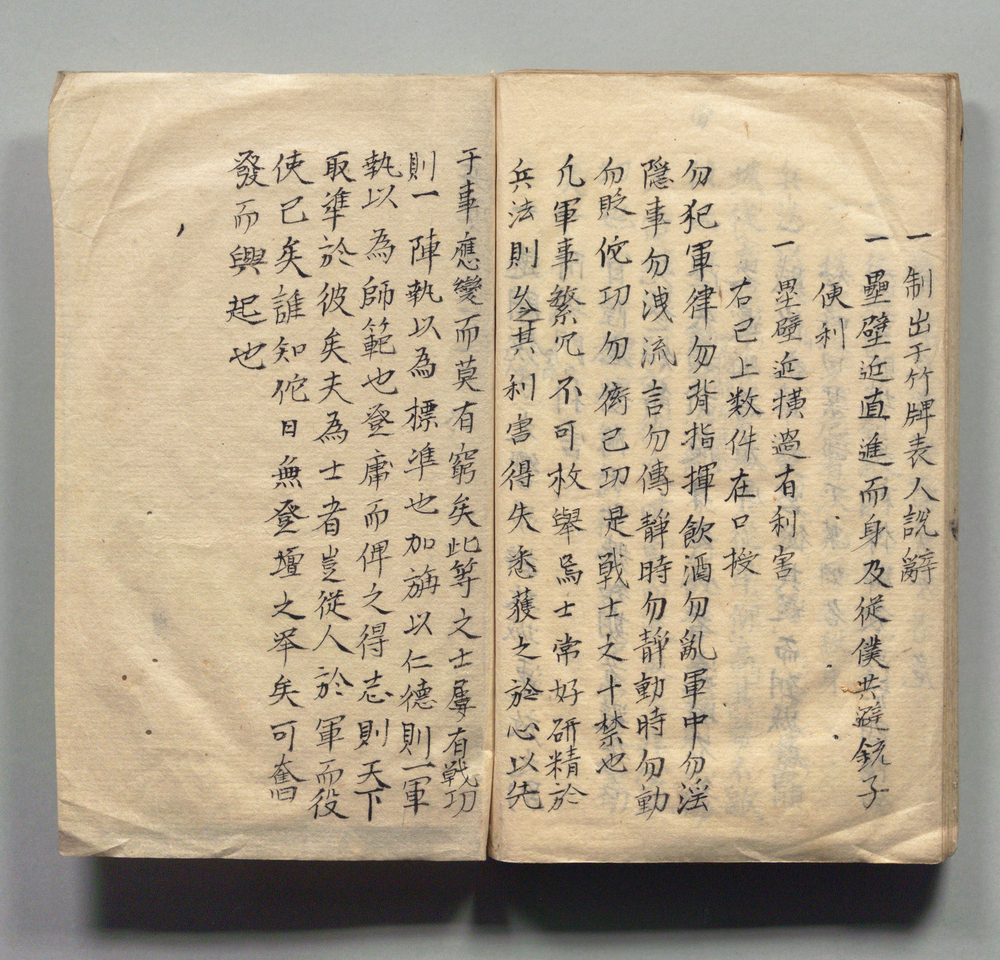 一制出于竹牌表人說辭
一壘壁近直進而身及従僕共避銃子
便利
一壘壁近横過有利害
右已上数件在口授
勿犯軍律勿背指揮飲酒勿亂軍中勿淫
隱事勿洩流言勿傳静時勿静動時勿動
勿貶佗功勿衒己功是戰士之十禁也
凢軍事繁冗不可枚舉焉士常好研精於
兵法則其利害得失悉蔉之於心以先
于事應變而莫有窮矣此等之士屢有戰功
則一陣執以為標準也加旃以仁德則一軍
執以為師範也登庸而俾之得志則天下
取準於彼矣夫為士者豈従人於軍而役
使已矣誰知佗日無登壇之举矣可奮
發而興起也